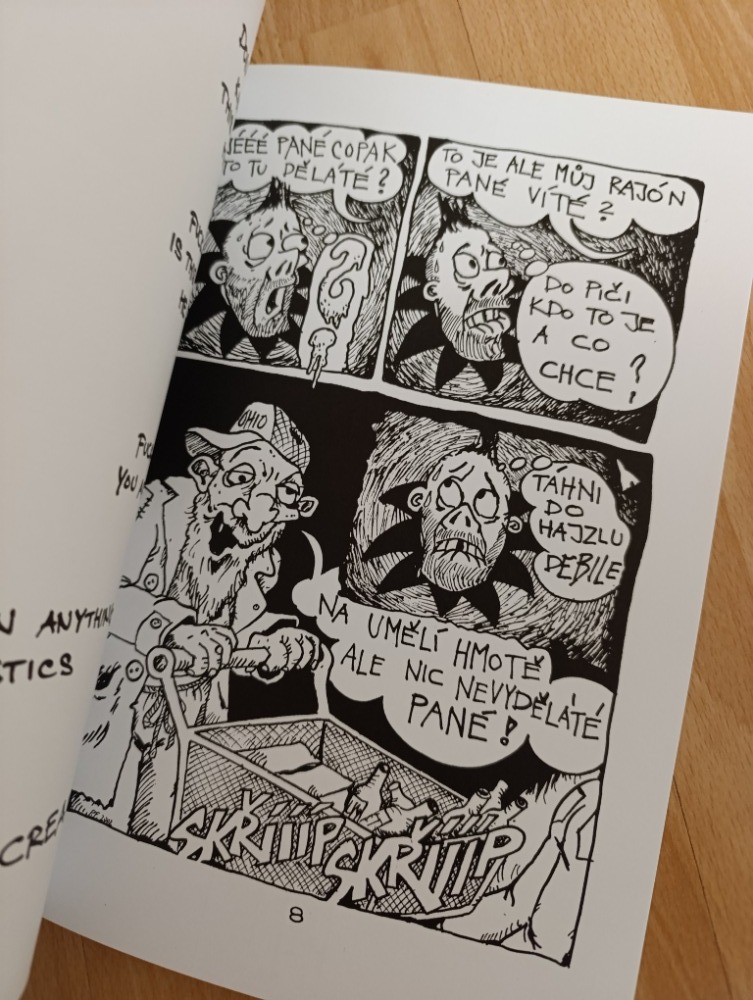 JÉÉÉ PANÉ COPAK
TO TU DĚLÁTÉ?
TO JE ALE MŮJ RAJÓN
PANÉ VÍTÉ?
DO PIČI
KDO TO JE
A CO
CHCE?
OHIO
TÁHNI
DO
HAJZLU
DEBILE
NA UMĚLÍ HMOTĚ
ALE NIC NEVYDĚLÁTÉ
PANÉ!
SKŘÍÍÍP
SKŘÍÍÍP
8
YOU
ANYTHIN
STICS
CREA